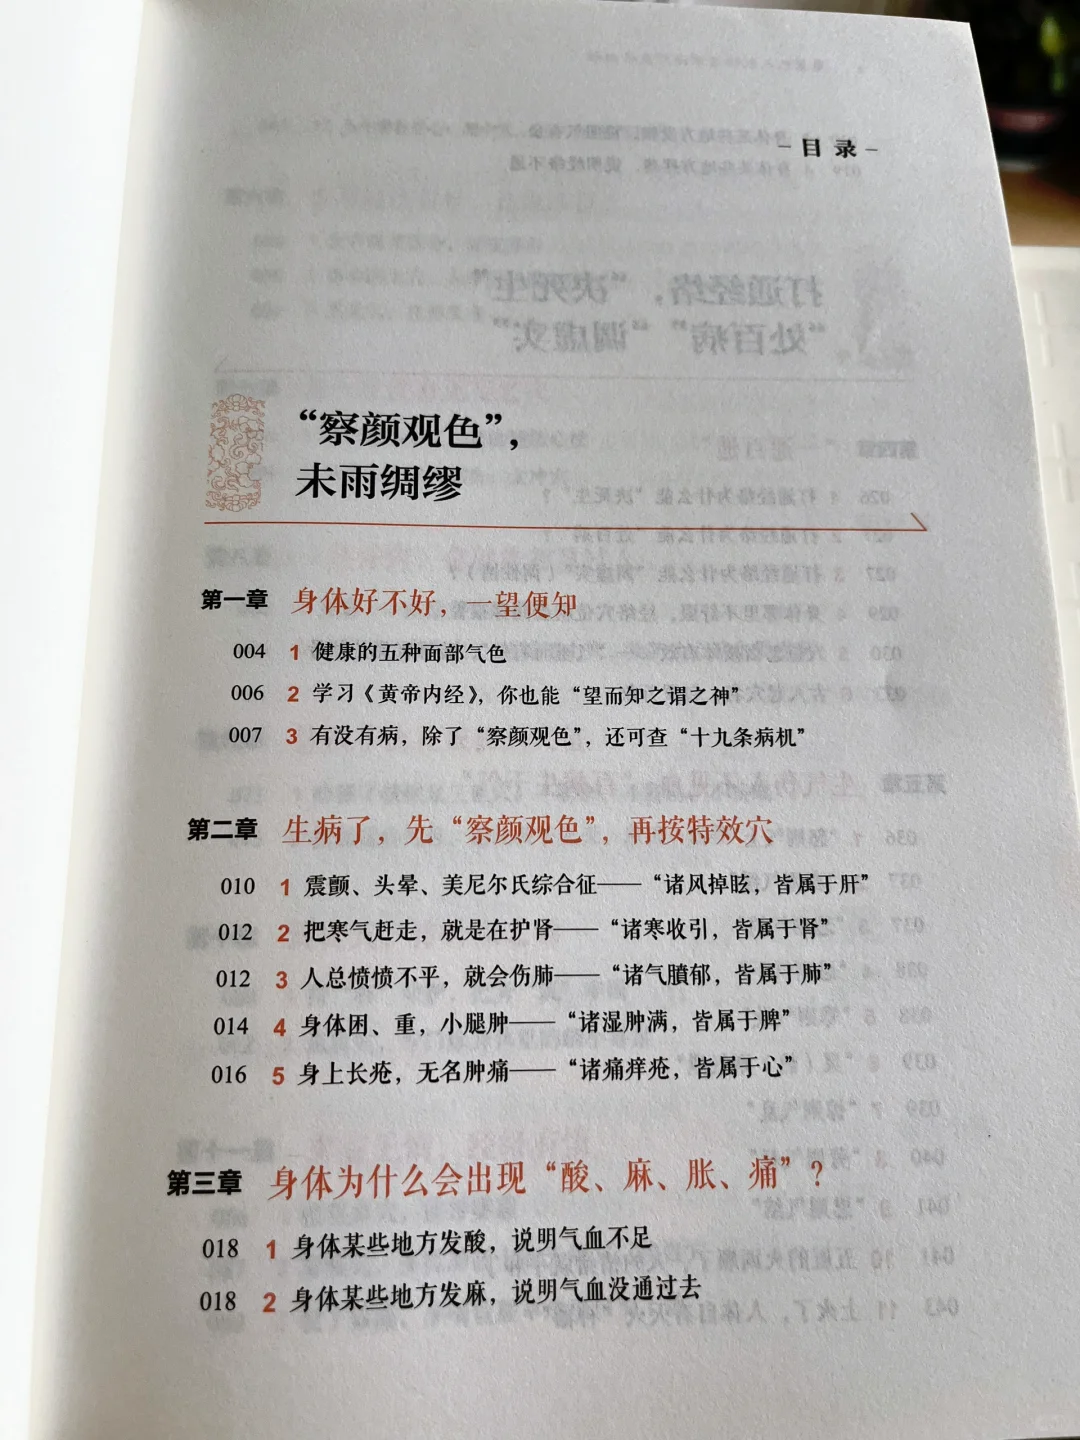 －目录－
“察颜观色”，
未雨绸缪
第一章 身体好不好，一望便知
004 1 健康的五种面部气色
006 2 学习《黄帝内经》，你也能“望而知之谓之神”
007 3 有没有病，除了“察颜观色”，还可查“十九条病机”
第二章 生病了，先“察颜观色”，再按特效穴
010 1 震颤、头晕、美尼尔氏综合征——“诸风掉眩，皆属于肝”
012 2 把寒气赶走，就是在护肾——“诸寒收引，皆属于肾”
012 3 人总愤愤不平，就会伤肺——“诸气膹郁，皆属于肺”
014 4 身体困、重，小腿肿——“诸湿肿满，皆属于脾”
016 5 身上长疮，无名肿痛——“诸痛痒疮，皆属于心”
第三章 身体为什么会出现“酸、麻、胀、痛”？
018 1 身体某些地方发酸，说明气血不足
018 2 身体某些地方发麻，说明气血没通过去